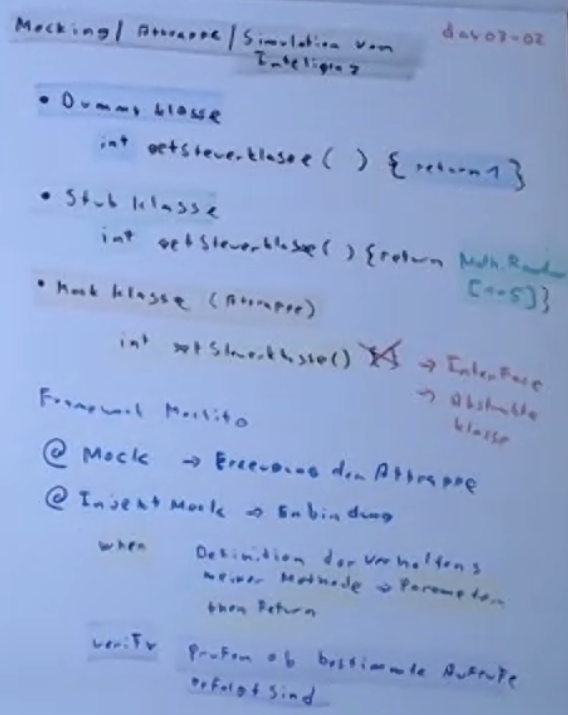 Mocking / Attrappe / Simulation von day03-02
Inteligenz
• Dummy klasse
int getSteuerklasse ( ) { return 1 }
• Stub klasse
int getSteuerklasse ( ) { return Math.Random
[1-5] }
• Mock klasse (Attrappe)
int getSteuerklasse() → Interface
→ Abstrakte
klasse
Framework Mockito
@ Mock → Erzeugung der Attrappe
@ Inject Mock → Einbindung
when Definition der Verhaltens
meiner Methode → Parameter
then Return
verify Prüfen ob bestimmte Aufrufe
erfolgt sind